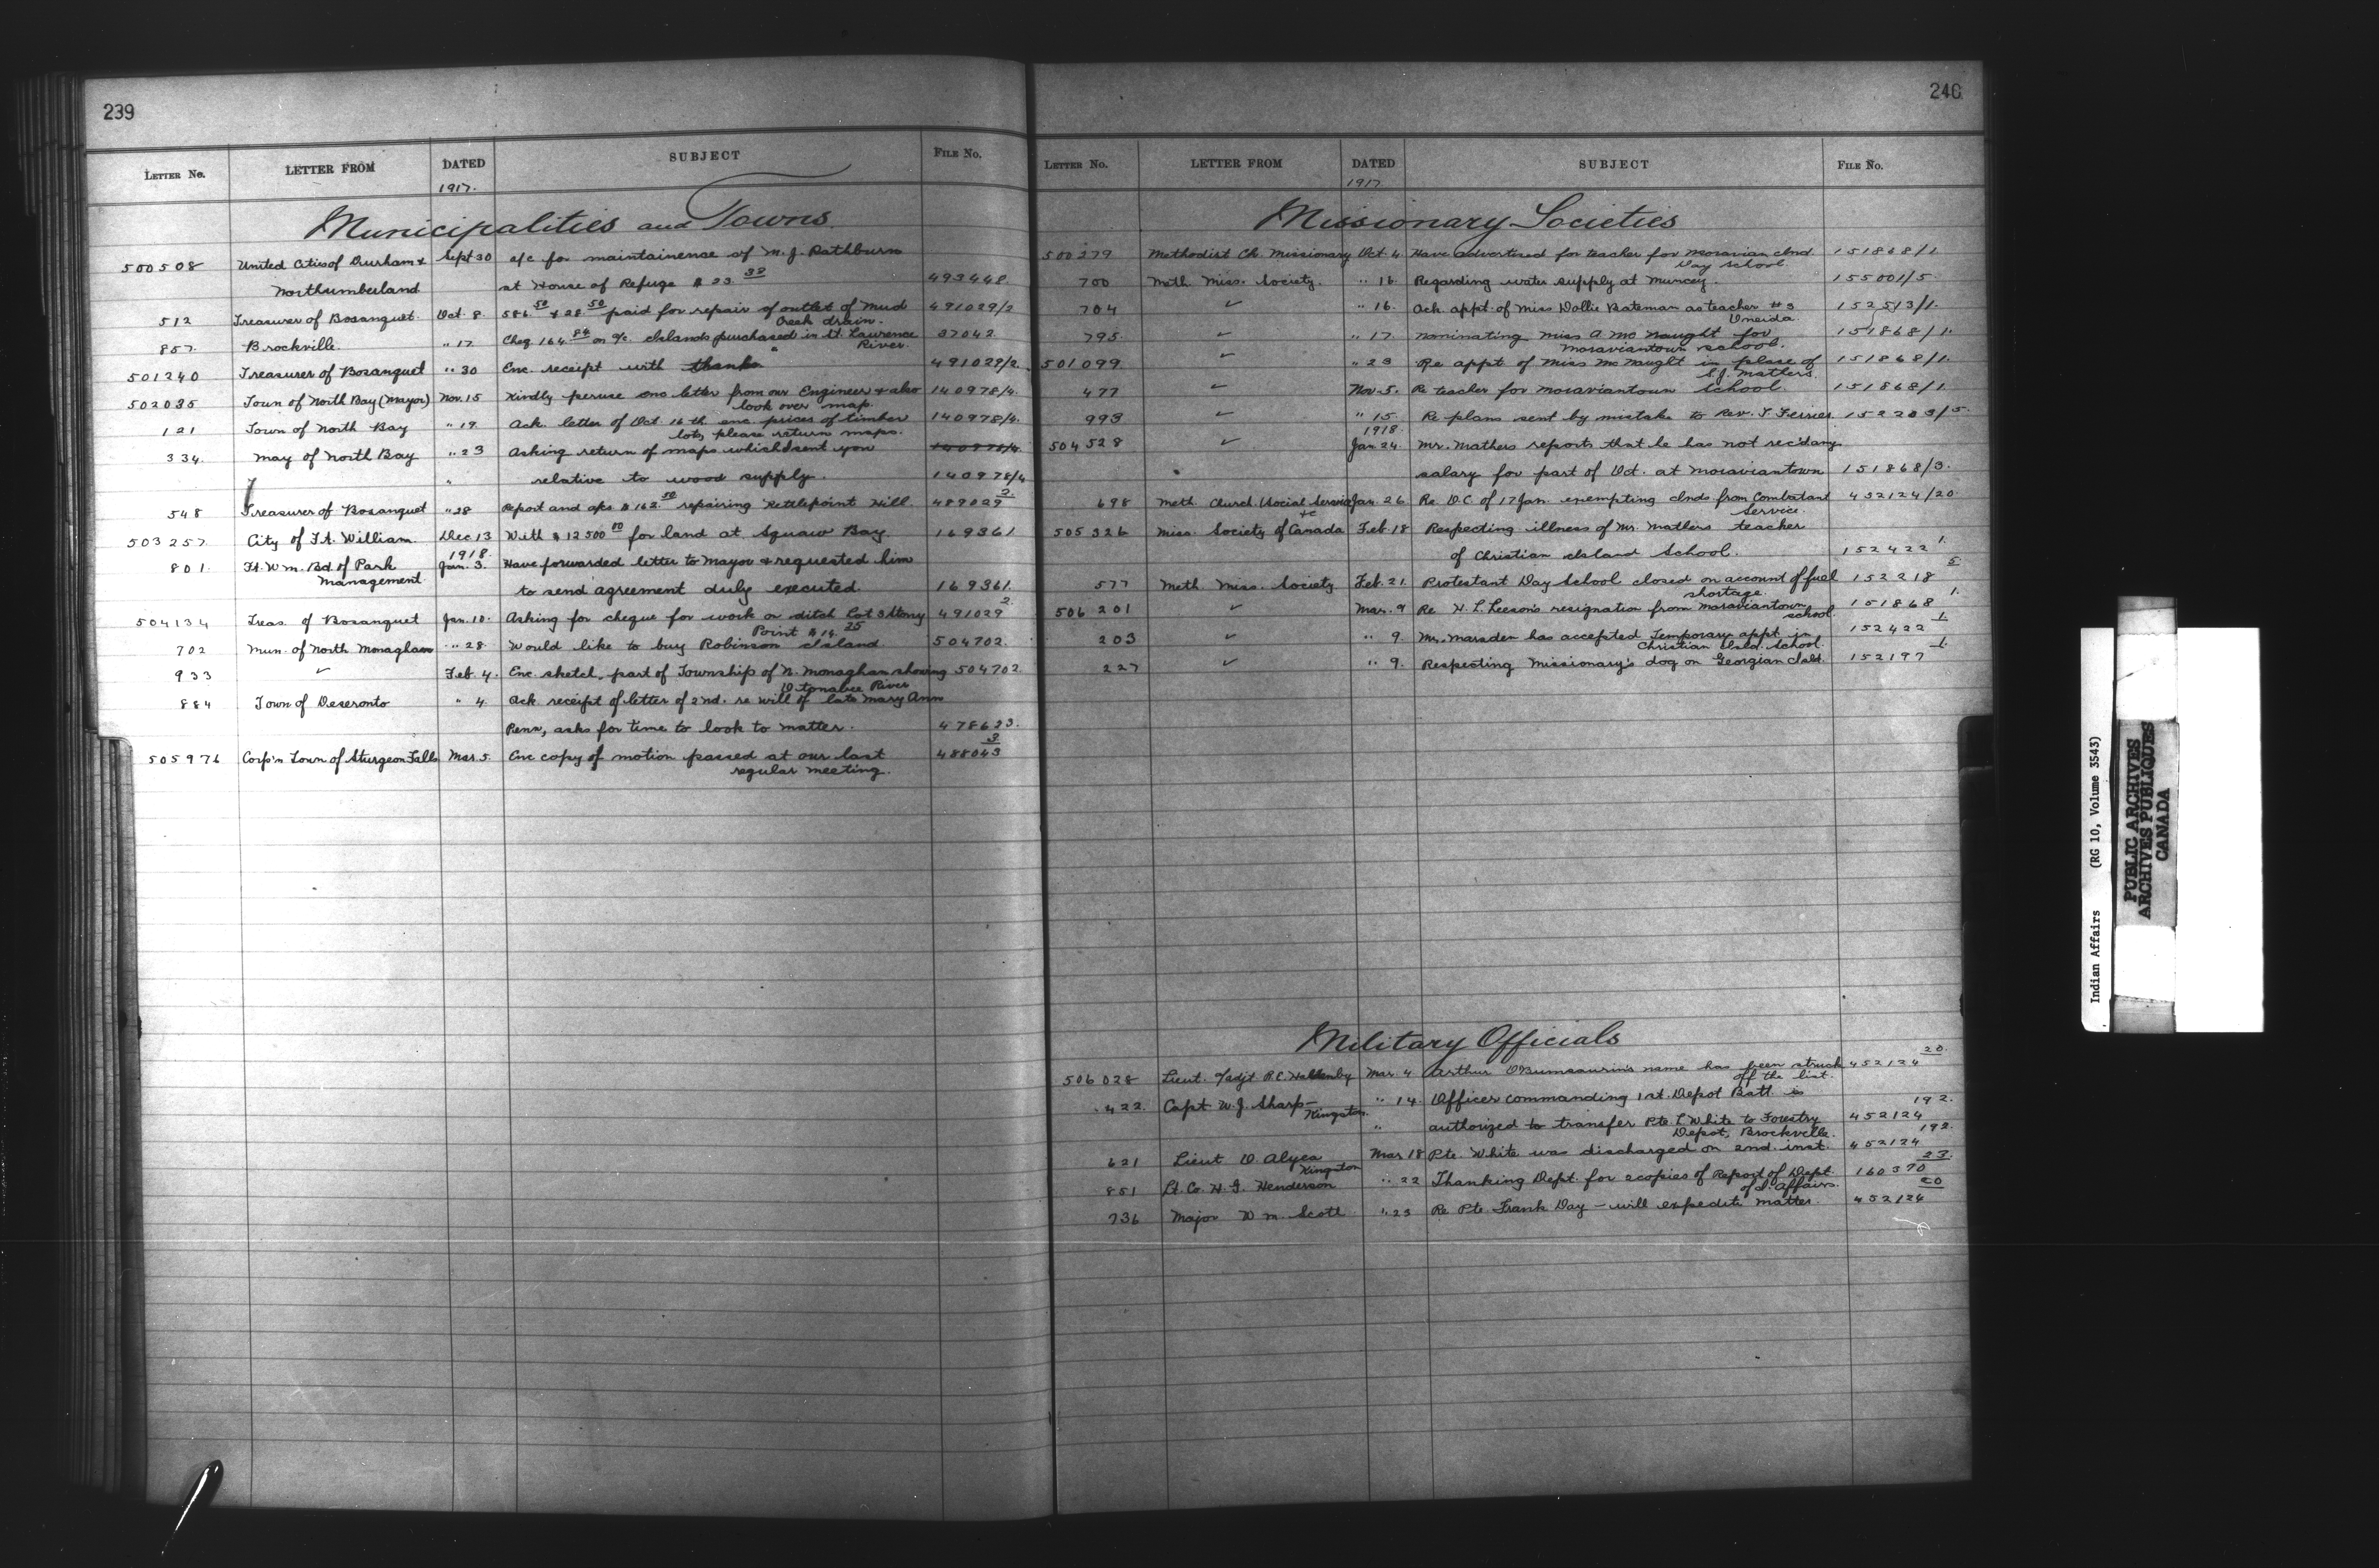 239
LETTER No. LETTER FROM DATED SUBJECT FILE No.
1917.
Municipalities and Towns
500508 United Cities of Durham & Sept 30 a/c for maintainence of M. J. Rathburn
Northumberland at House of Refuge $23.39 493448
512 Treasurer of Bosanquet. Oct. 8. 586.50 & 28.50 paid for repair of outlet of Mud 491029/2
Creek drain.
857. Brockville. " 17 Cheq 164.84 on a/c. Islands purchased in St. Lawrence 37042.
River.
501240 Treasurer of Bosanquet " 30 Enc. receipt with thanks 491029/2.
502035 Town of North Bay (Mayor) Nov. 15 Kindly peruse enc letter from our Engineer & also 140978/4.
look over map.
121 Town of North Bay " 19. Ack. letter of Oct 16th enc. prices of timber 140978/4.
lots, please return maps.
334. May of North Bay " 23 Asking return of maps which I sent you 140978/4.
" relative to wood supply. 140978/4
548 Treasurer of Bosanquet " 28 Report and a/cs $162.50 repairing Kettlepoint Hill. 489029 2.
503257 City of Ft. William Dec 13 With $12500.00 for land at Squaw Bay 169361
1918.
801. Ft. Wm. Bd. of Park Jan. 3. Have forwarded letter to Mayor & requested him
Management to send agreement duly executed 169361.
504134 Treas. of Bosanquet Jan. 10. Asking for cheque for work on ditch Lot 3 Stony 491029 2.
Point $14.25
702 Mun. of North Monaghan " 28. Would like to buy Robinson Island. 504702.
933 ✓ Feb. 4. Enc. sketch, part of Township of N. Monaghan showing 504702
Otonabee River
884 Town of Deseronto " 4. Ack receipt of letter of 2nd. re will of late Mary Ann
Penn, asks for time to look to matter. 478623.
505976 Corp'n Town of Sturgeon Falls Mar. 5. Enc copy of motion passed at our last 488043 3
regular meeting.
240
LETTER No. LETTER FROM DATED SUBJECT FILE No.
1917.
Missionary Societies
500279 Methodist Ch. Missionary Oct. 4. Have advertised for teacher for Moravian Ind. 151868/1.
Day school.
700 Meth. Miss. Society. " 16. Regarding water supply at Muncey. 155001/5.
704 ✓ " 16. Ack. appt. of Miss Dollie Bateman as teacher #3 152513/1.
Oneida.
795. ✓ " 17. nominating Miss A. McNaught for 151868/1.
Moraviantown school.
501099. ✓ " 23 Re appt of Miss McNaught in place of 151868/1.
S.J. Mathers.
477 ✓ Nov. 5. Re teacher for Moraviantown School. 151868/1.
993 ✓ " 15. Re plans sent by mistake to Rev. T. Ferrier. 152203/5.
1918.
504528 ✓ Jan. 24. Mr. Mathers reports that he has not rec'd any
salary for part of Oct. at Moraviantown 151868/3.
698 Meth. Church. Social Service Jan. 26. Re. O.C. of 17 Jan. exempting Inds from Combatant 452124/20
&c Service
505326 Miss. Society of Canada Feb. 18 Respecting illness of Mr. Mathers teacher
of Christian Island School. 152422 1.
577 Meth Miss. Society Feb. 21. Protestant Day School closed on account of fuel 152218 5
shortage.
506201 ✓ Mar. 9 Re H. L. Leeson's resignation from Moraviantown 151868 1.
school.
203 ✓ " 9. Mr. Marsden has accepted Temporary appt in 152422 1.
Christian Isld. School.
227 ✓ " 9. Respecting Missionary's dog on Georgian Isld. 152197 1.
Military Officials
506028 Lieut. a/adjt R.C. Mar. 4 Arthur name has been struck 452124 20.
off the list.
422. Capt W. J. Sharp— " 14. Officer commanding 1st. Depot Batt. is
Kingston. " authorized to transfer Pte. L White to Forestry 452124 192.
Depot, Brockville.
621 Lieut O Alyea Mar 18 Pte. White was discharged on 2nd. inst. 452124 192.
Kingston
851 Lt. Co. H. I. Henderson " 22 Thanking Dept. for 2 copies of Report of Dept. 160370 23.
of I. Affairs.
736 Major Wm. Scott " 23 Re Pte Frank Day — will expedite matter. 452124 20
Indian Affairs (RG 10, Volume 3543)
PUBLIC ARCHIVES
ARCHIVES PUBLIQUES
CANADA